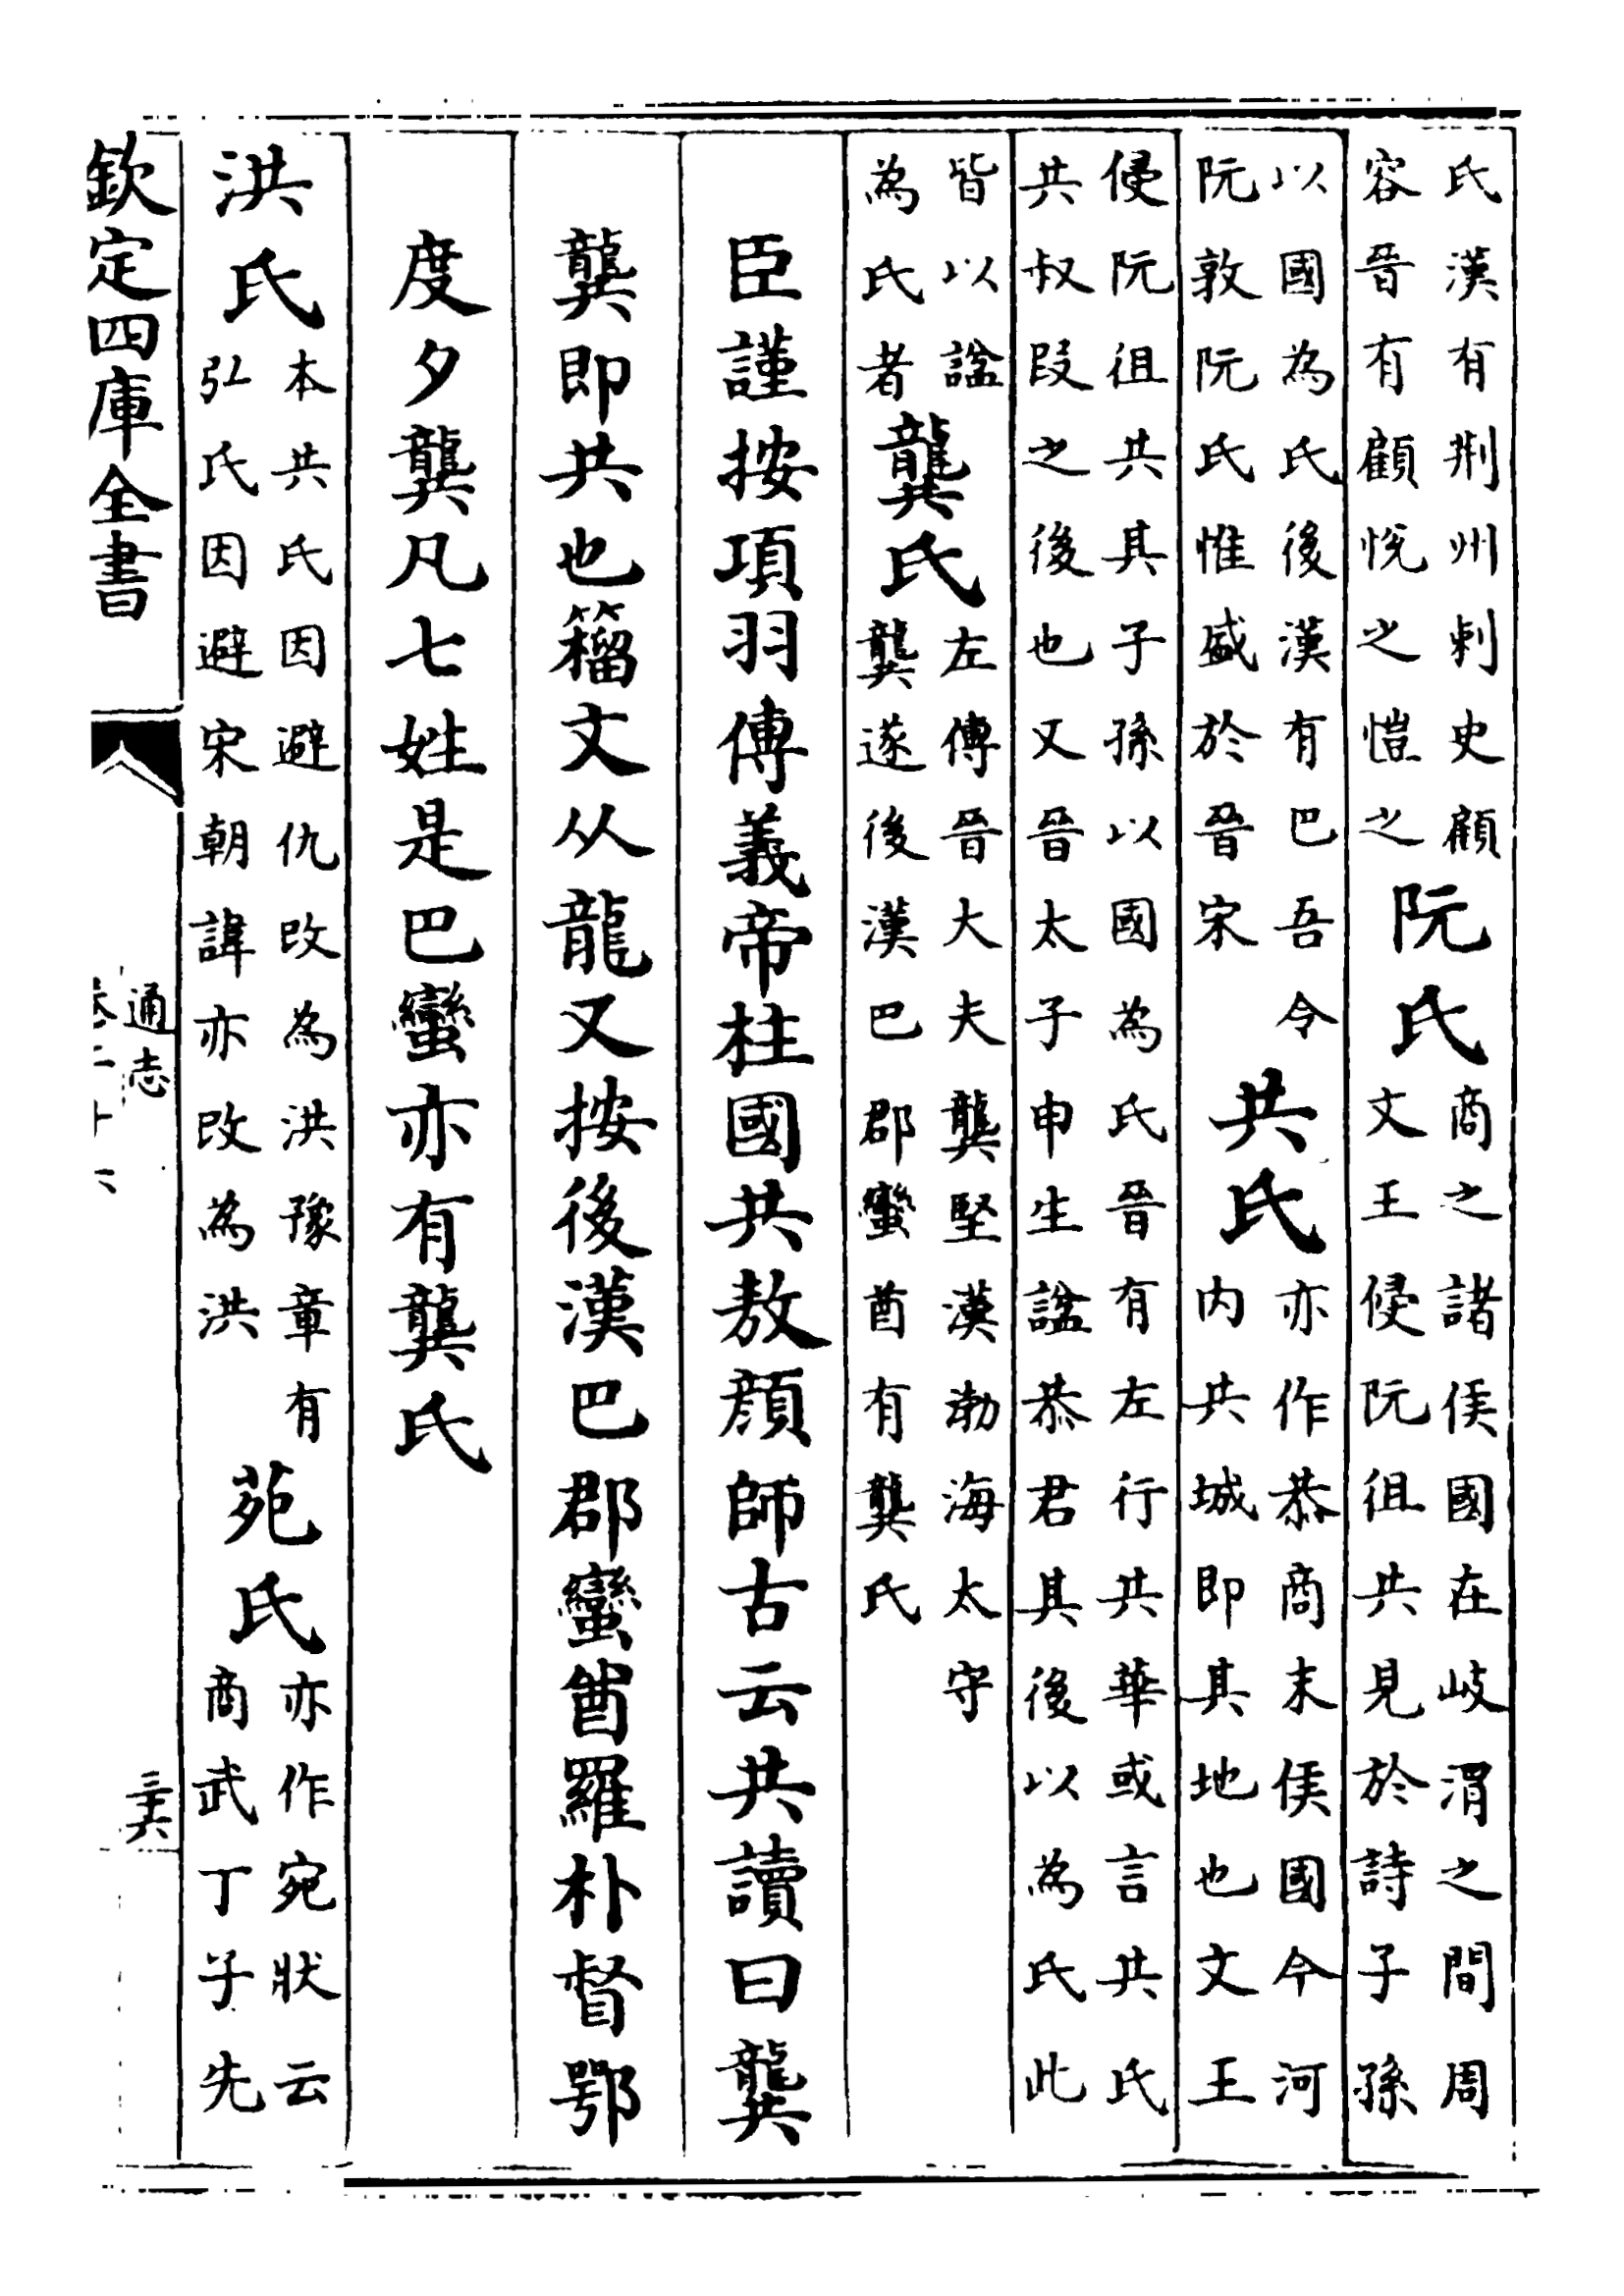 氏漢有荆州刺史顧容晉有顧悅之愷之阮氏商之諸侯國在岐渭之間周文王侵阮徂共見於詩子孫
以國為氏後漢有巴吾令阮敦阮氏惟盛於晉宋共氏亦作恭商末侯國今河内共城即其地也文王
侵阮徂共其子孫以國為氏晉有左行共華或言共氏共叔段之後也又晉太子申生諡恭君其後以為氏此
皆以諡為氏者龔氏左傳晉大夫龔堅漢渤海太守龔遂後漢巴郡蠻酋有龔氏
臣謹按項羽傳義帝柱國共敖顔師古云共讀曰龔
龔即共也籀文从龍又按後漢巴郡蠻酋羅朴督鄂
度夕龔凡七姓是巴蠻亦有龔氏
洪氏本共氏因避仇改為洪豫章有弘氏因避宋朝諱亦改為洪苑氏亦作宛狀云商武丁子先
欽定四庫全書
通志
三十六